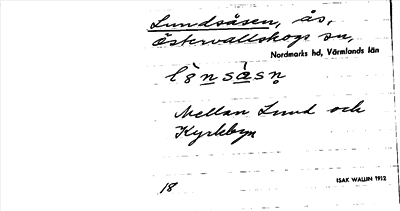 Lundsåsen, ås,
Östervallskogs sn,
Nordmarks hd, Värmlands län
Mellan Lund och
Kyrkbyn
18
ISAK WALLIN 1912